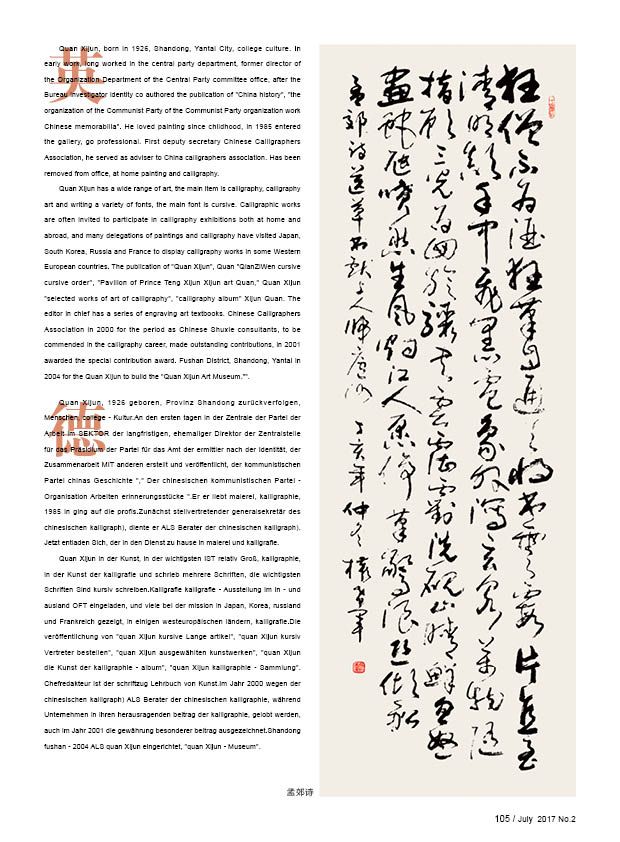 英
Quan Xijun, born in 1926, Shandong, Yantai City, college culture. In
early work, long worked in the central party department, former director of
the Organization Department of the Central Party committee office, after the
Bureau investigator identity co authored the publication of "China history", "the
organization of the Communist Party of the Communist Party organization work
Chinese memorabilia". He loved painting since childhood, in 1985 entered
the gallery, go professional. First deputy secretary Chinese Calligraphers
Association, he served as adviser to China calligraphers association. Has been
removed from office, at home painting and calligraphy.
Quan Xijun has a wide range of art, the main item is calligraphy, calligraphy
art and writing a variety of fonts, the main font is cursive. Calligraphic works
are often invited to participate in calligraphy exhibitions both at home and
abroad, and many delegations of paintings and calligraphy have visited Japan,
South Korea, Russia and France to display calligraphy works in some Western
European countries. The publication of "Quan Xijun", Quan "QianZiWen cursive
cursive order", "Pavilion of Prince Teng Xijun Xijun art Quan," Quan Xijun
"selected works of art of calligraphy", "calligraphy album" Xijun Quan. The
editor in chief has a series of engraving art textbooks. Chinese Calligraphers
Association in 2000 for the period as Chinese Shuxie consultants, to be
commended in the calligraphy career, made outstanding contributions, in 2001
awarded the special contribution award. Fushan District, Shandong, Yantai in
2004 for the Quan Xijun to build the "Quan Xijun Art Museum."".
德
Quan Xijun, 1926 geboren, Provinz Shandong zurückverfolgen,
Menschen, college - Kultur.An den ersten tagen in der Zentrale der Partei der
Arbeit im SEKTOR der langfristigen, ehemaliger Direktor der Zentralstelle
für das Präsidium der Partei für das Amt der ermittler nach der Identität, der
Zusammenarbeit MIT anderen erstellt und veröffentlicht, der kommunistischen
Partei chinas Geschichte "," Der chinesischen kommunistischen Partei -
Organisation Arbeiten erinnerungsstücke ".Er er liebt malerei, kalligraphie,
1985 in ging auf die profis.Zunächst stellvertretender generalsekretär des
chinesischen kalligraph), diente er ALS Berater der chinesischen kalligraph).
Jetzt entladen Sich, der in den Dienst zu hause in malerei und kalligrafie.
Quan Xijun in der Kunst, in der wichtigsten IST relativ Groß, kalligraphie,
in der Kunst der kalligrafie und schrieb mehrere Schriften, die wichtigsten
Schriften Sind kursiv schreiben.Kalligrafie kalligrafie - Ausstellung im in - und
ausland OFT eingeladen, und viele bei der mission in Japan, Korea, russland
und Frankreich gezeigt, in einigen westeuropäischen ländern, kalligrafie.Die
veröffentlichung von "quan Xijun kursive Lange artikel", "quan Xijun kursiv
Vertreter bestellen", "quan Xijun ausgewählten kunstwerken", "quan Xijun
die Kunst der kalligraphie - album", "quan Xijun kalligraphie - Sammlung".
Chefredakteur ist der schriftzug Lehrbuch von Kunst.Im Jahr 2000 wegen der
chinesischen kalligraph) ALS Berater der chinesischen kalligraphie, während
Unternehmen in ihren herausragenden beitrag der kalligraphie, gelobt werden,
auch im Jahr 2001 die gewährung besonderer beitrag ausgezeichnet.Shandong
fushan - 2004 ALS quan Xijun eingerichtet, "quan Xijun - Museum".
狂僧不为酒狂笔自通天将书云霞片直至
清明巅手中飞黑电象外泻玄泉万物随
指顾三光为回旋骤书云霮䨴洗砚山晴鲜忽怒
画蛇虺喷然生风烟江人愿停笔惊浪恐倾船
孟郊诗送草书献上人归庐山 丁亥年仲冬 权希军
孟郊诗
105 / July 2017 No.2